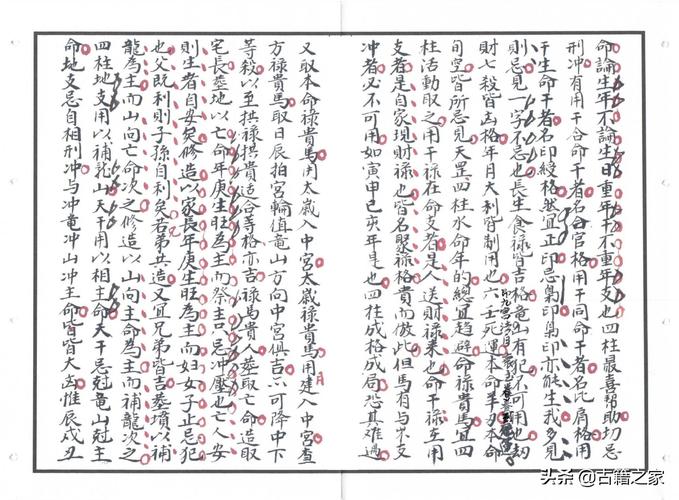 命論生年不論生日重年干不重年支也四柱最喜幫助切忌
刑冲有用干合命干者名合官格用干同命干者名比肩格用
干生命干者名印綬格然宜正印忌梟印梟印亦能生我多見
則忌見一字不忌也長生食祿皆吉格竜山有犯不可用也刼
財七殺皆凶格年月大利皆制用也六壬死運本命羊刃本命
旬空皆所忌見天罡四柱水命年的總宜趋避命禄貴馬宜四
柱活動取之用干禄在命支者是人送財禄来也命干禄在用
支者是自家現財禄也皆名聚禄格貴而倣此但馬有与不支
冲者必不可用如寅申巳亥年是也四柱成格成局恐其难遇
又取本命禄貴馬用太歲入中宮太歲禄貴馬用建入中宮查
方禄貴馬取日辰拍宮輪值竜山方向中宮俱吉六可降中下
等殺以至拱禄拱貴适合等格亦吉禄馬貴人塟取亡命造取
宅長塟地以亡命年庚生旺為主而祭主只忌冲壓也亡人安
則生者自安矣修造以家長年庚生旺為主而妇女子止忌犯
也父既利則子孫自利矣若弟兄共造又宜兄弟皆吉塟墳以補
龍為主而山向亡命次之修造以山向主命為主而補龍次之
四柱地支用以補龙山天干用以相主命天干忌尅竜山尅主
命地支忌自相刑冲与冲竜冲山冲主命皆皆大凶惟辰戍丑
头条 @古籍之家